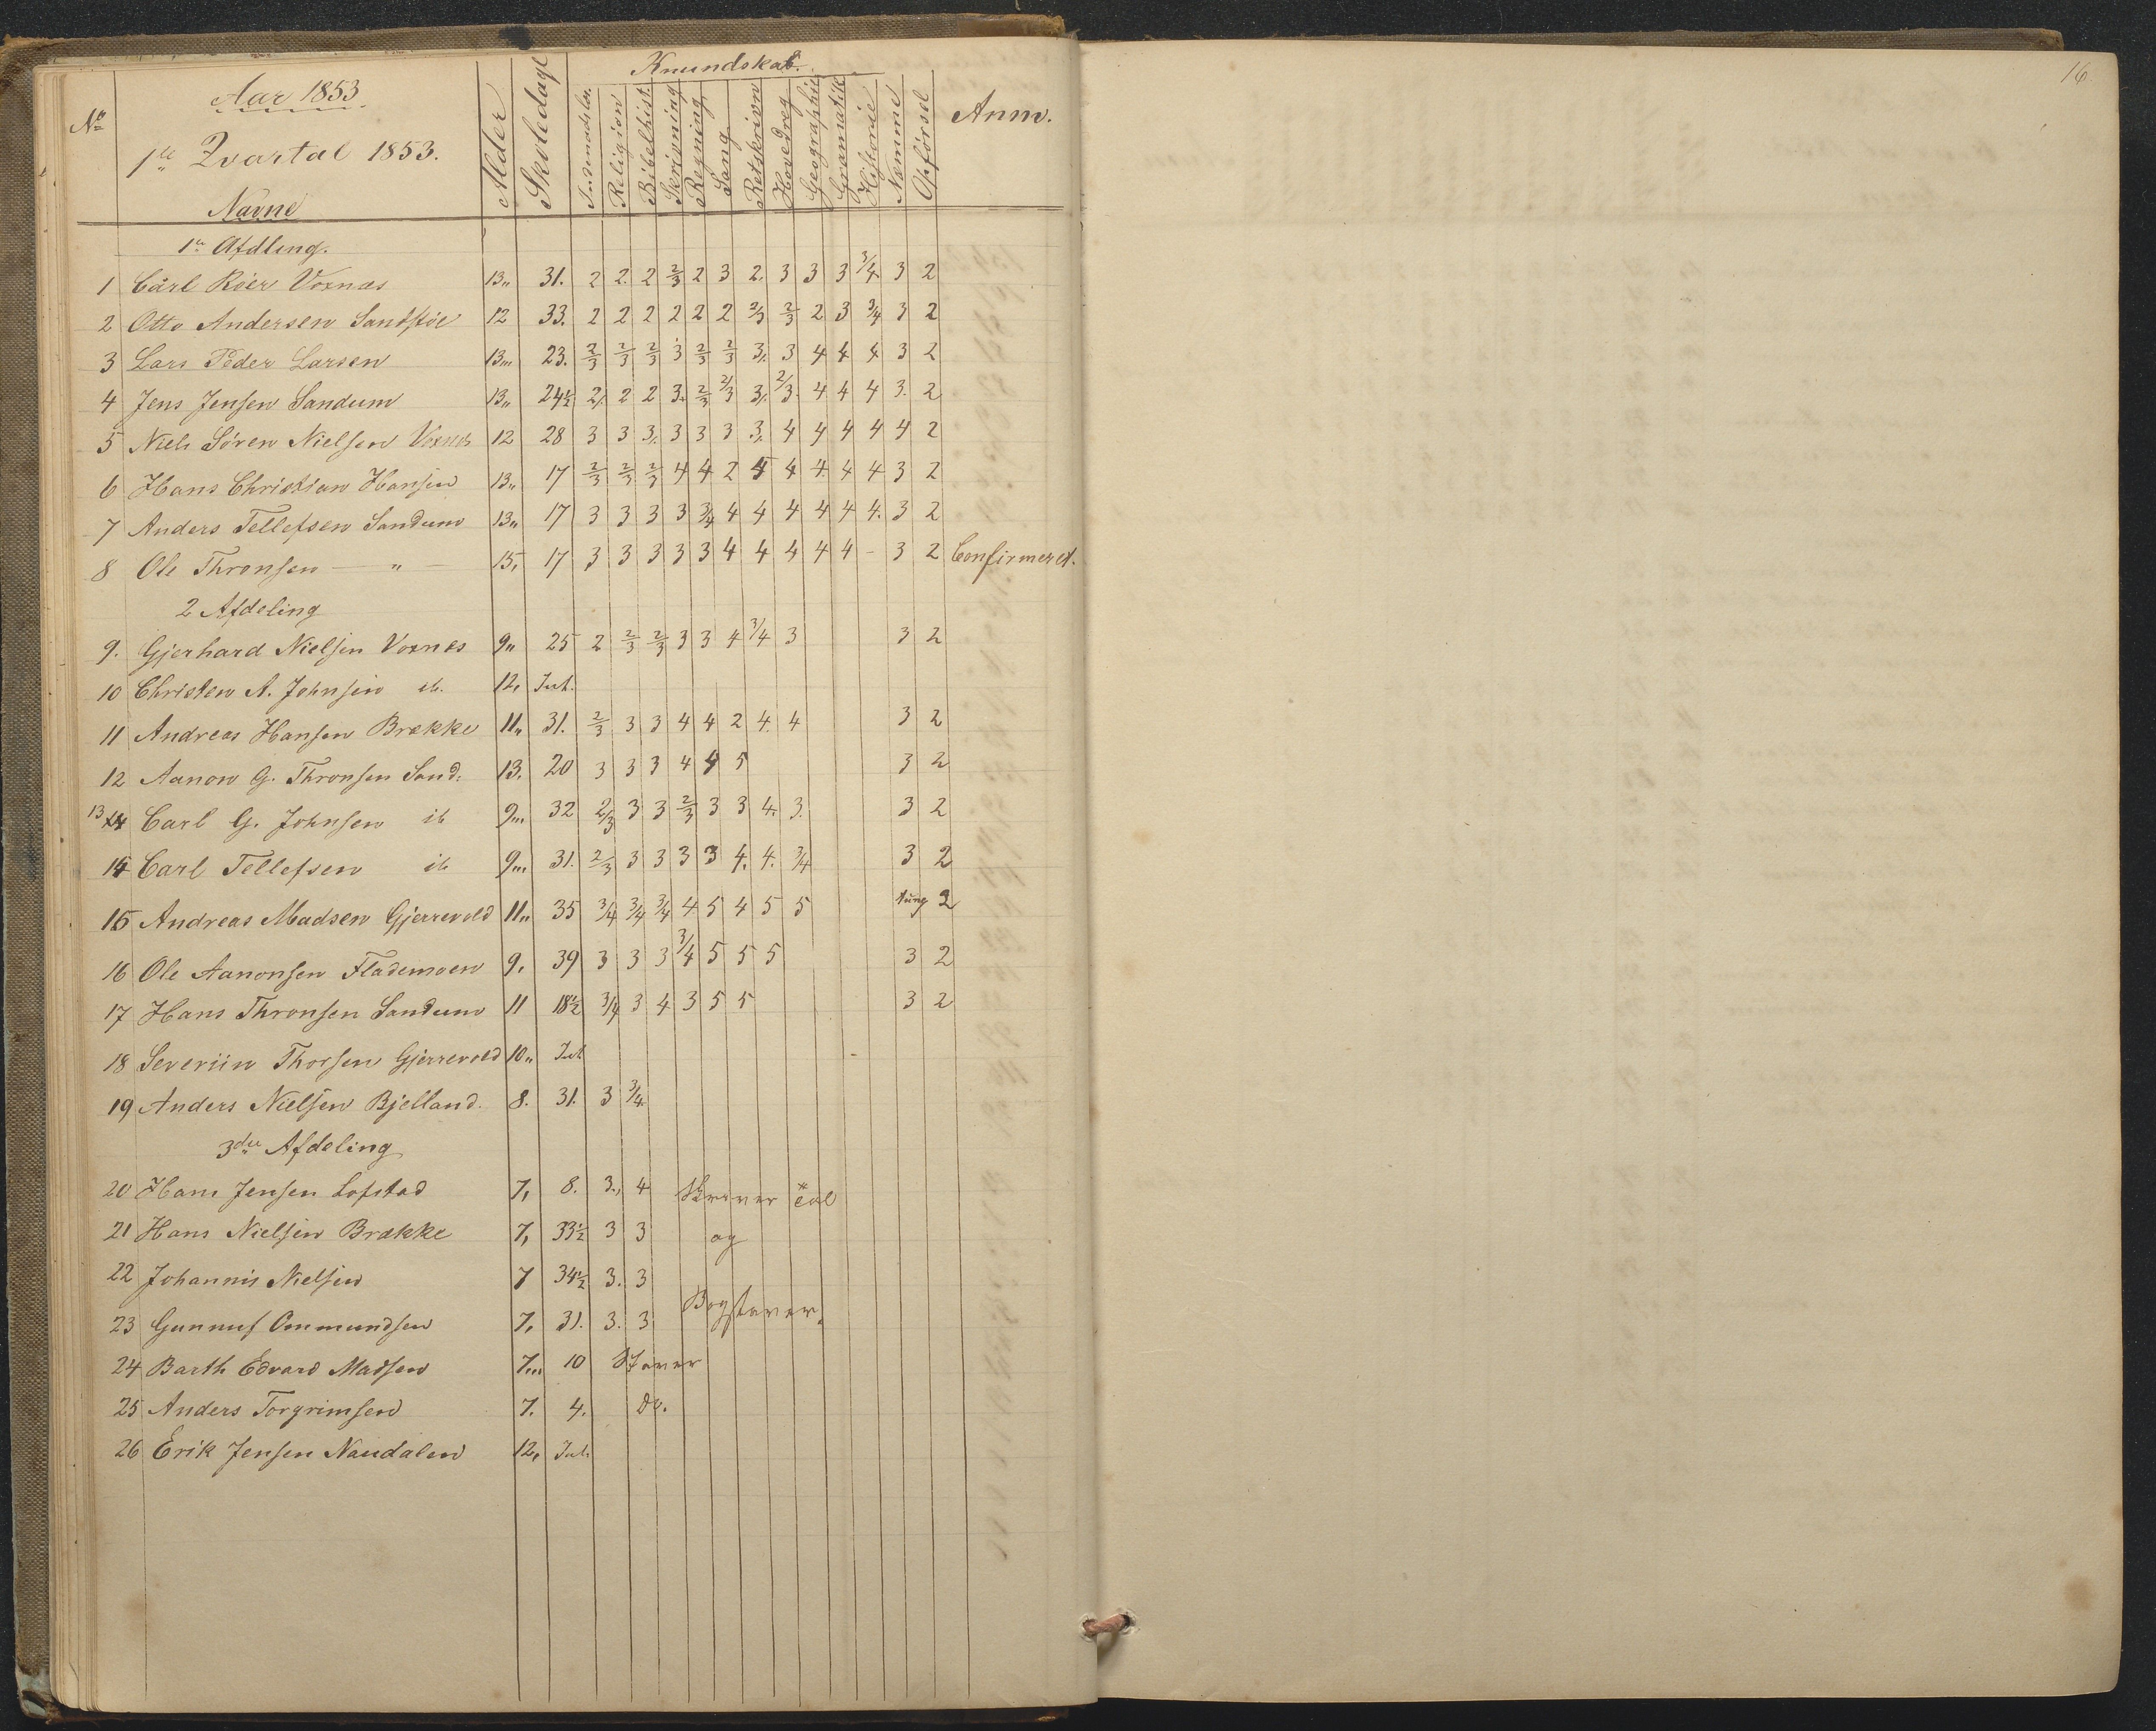 16
Aar 1853.
Kundskab.
No 1ste Qvartal 1853. Alder Skoledage Religion Bibelhist. Skrivning Regning Sang Retskrivn Hovedreg Geographie Gramatik Historie Nemme Opførsel Anm.
Navne
1te Afdling.
1 Carl Röer Voxnæs 13„ 31. 2 2. 2 2/3 2 3 2. 3 3 3 3/4 3 2
2 Otto Andersen Sandstöe 12 33. 2 2 2 2 2 2 2/3 2/3 2 3 3/4 3 2
3 Lars Peder Larsen 13„, 23. 2/3 2/3 2/3 3 2/3 2/3 3. 3 4 4 4 3 2
4 Jens Jensen Sandum 13„ 24½ 2. 2 2 3. 2/3 2/3 3. 2/3. 4 4 4 3. 2
5 Niels Sören Nielsen Voxnes 12 28 3 3 3. 3 3 3 3. 4 4 4 4 4 2
6 Hans Christian Hansen 13„ 17 2/3 2/3 2/3 4 4 2 4 4. 4 4 3 2
7 Anders Tellefsen Sandum 13„ 17 3 3 3 3 3/4 4 4 4 4 4 4. 3 2
8 Ole Thronsen — „ — 15, 17 3 3 3 3 3 4 4 4 4 4 – 3 2 Confirmered.
2 Afdeling
9. Gjerhard Nielsen Voxnes 9„ 25 2 2/3 2/3 3 3 4 3/4 3 3 2
10 Christen A. Johnsen ib. 12,
11 Andreas Hansen Brække 11„ 31. 2/3 3 3 4 4 2 4. 4 3 2
12 Aanon G. Thronsen Sand: 13. 20 3 3 3 4 4 5 3 2
13 Carl G. Johnsen ib 9„, 32 2/3 3 3 2/3 3 3 4. 3. 3 2
14 Carl Tellefsen ib 9„, 31. 2/3 3 3 3 3 4. 4. 3/4 3 2
15 Andreas Madsen Gjerrevold 11„ 35 3/4 3/4 3/4 4 5 4 5 5 tung 2
16 Ole Aanonsen Flademoen 9, 39 3 3 3 3/4 5 5 5 3 2
17 Hans Thronsen Sandum 11 18½ 3/4 3 4 3 5 5 3 2
18 Severiin Thorsen Gjerrevold 10„
19 Anders Nielsen Bjelland. 8. 31. 3 3/4
3die Afdeling
20 Hans Jensen Lofstad 7, 8. 3., 4 Skriver
21 Hans Nielsen Brække 7, 33½ 3 3 og
22 Johannis Nielsen 7 34½ 3. 3
23 Gunnuf Ommundsen 7, 31. 3. 3 Bogstaver.
24 Barth Edvard Madsen 7„, 10 Staver
25 Anders Torgrimsen 7. 4. do.
26 Erik Jensen Naudalen 12,